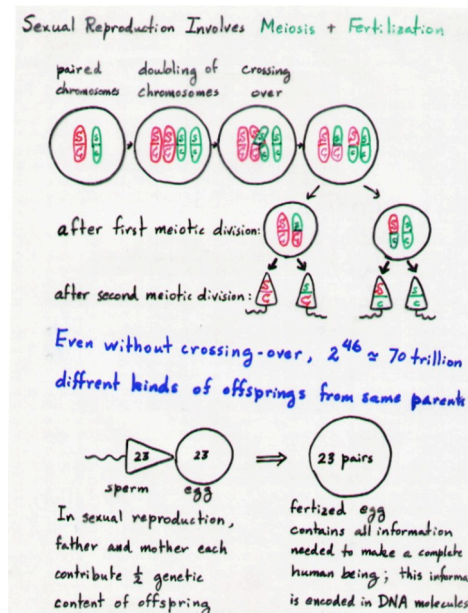 Sexual Reproduction Involves Meiosis + Fertilization
paired chromosomes
doubling of chromosomes
crossing over
after first meiotic division:
after second meiotic division:
Even without crossing-over, 2^46 ≃ 70 trillion
diffrent kinds of offsprings from same parents
23
23
⇒
23 pairs
sperm
egg
In sexual reproduction,
father and mother each
contribute ½ genetic
content of offspring
fertized egg
contains all information
needed to make a complete
human being; this informa
is encoded in DNA molecules